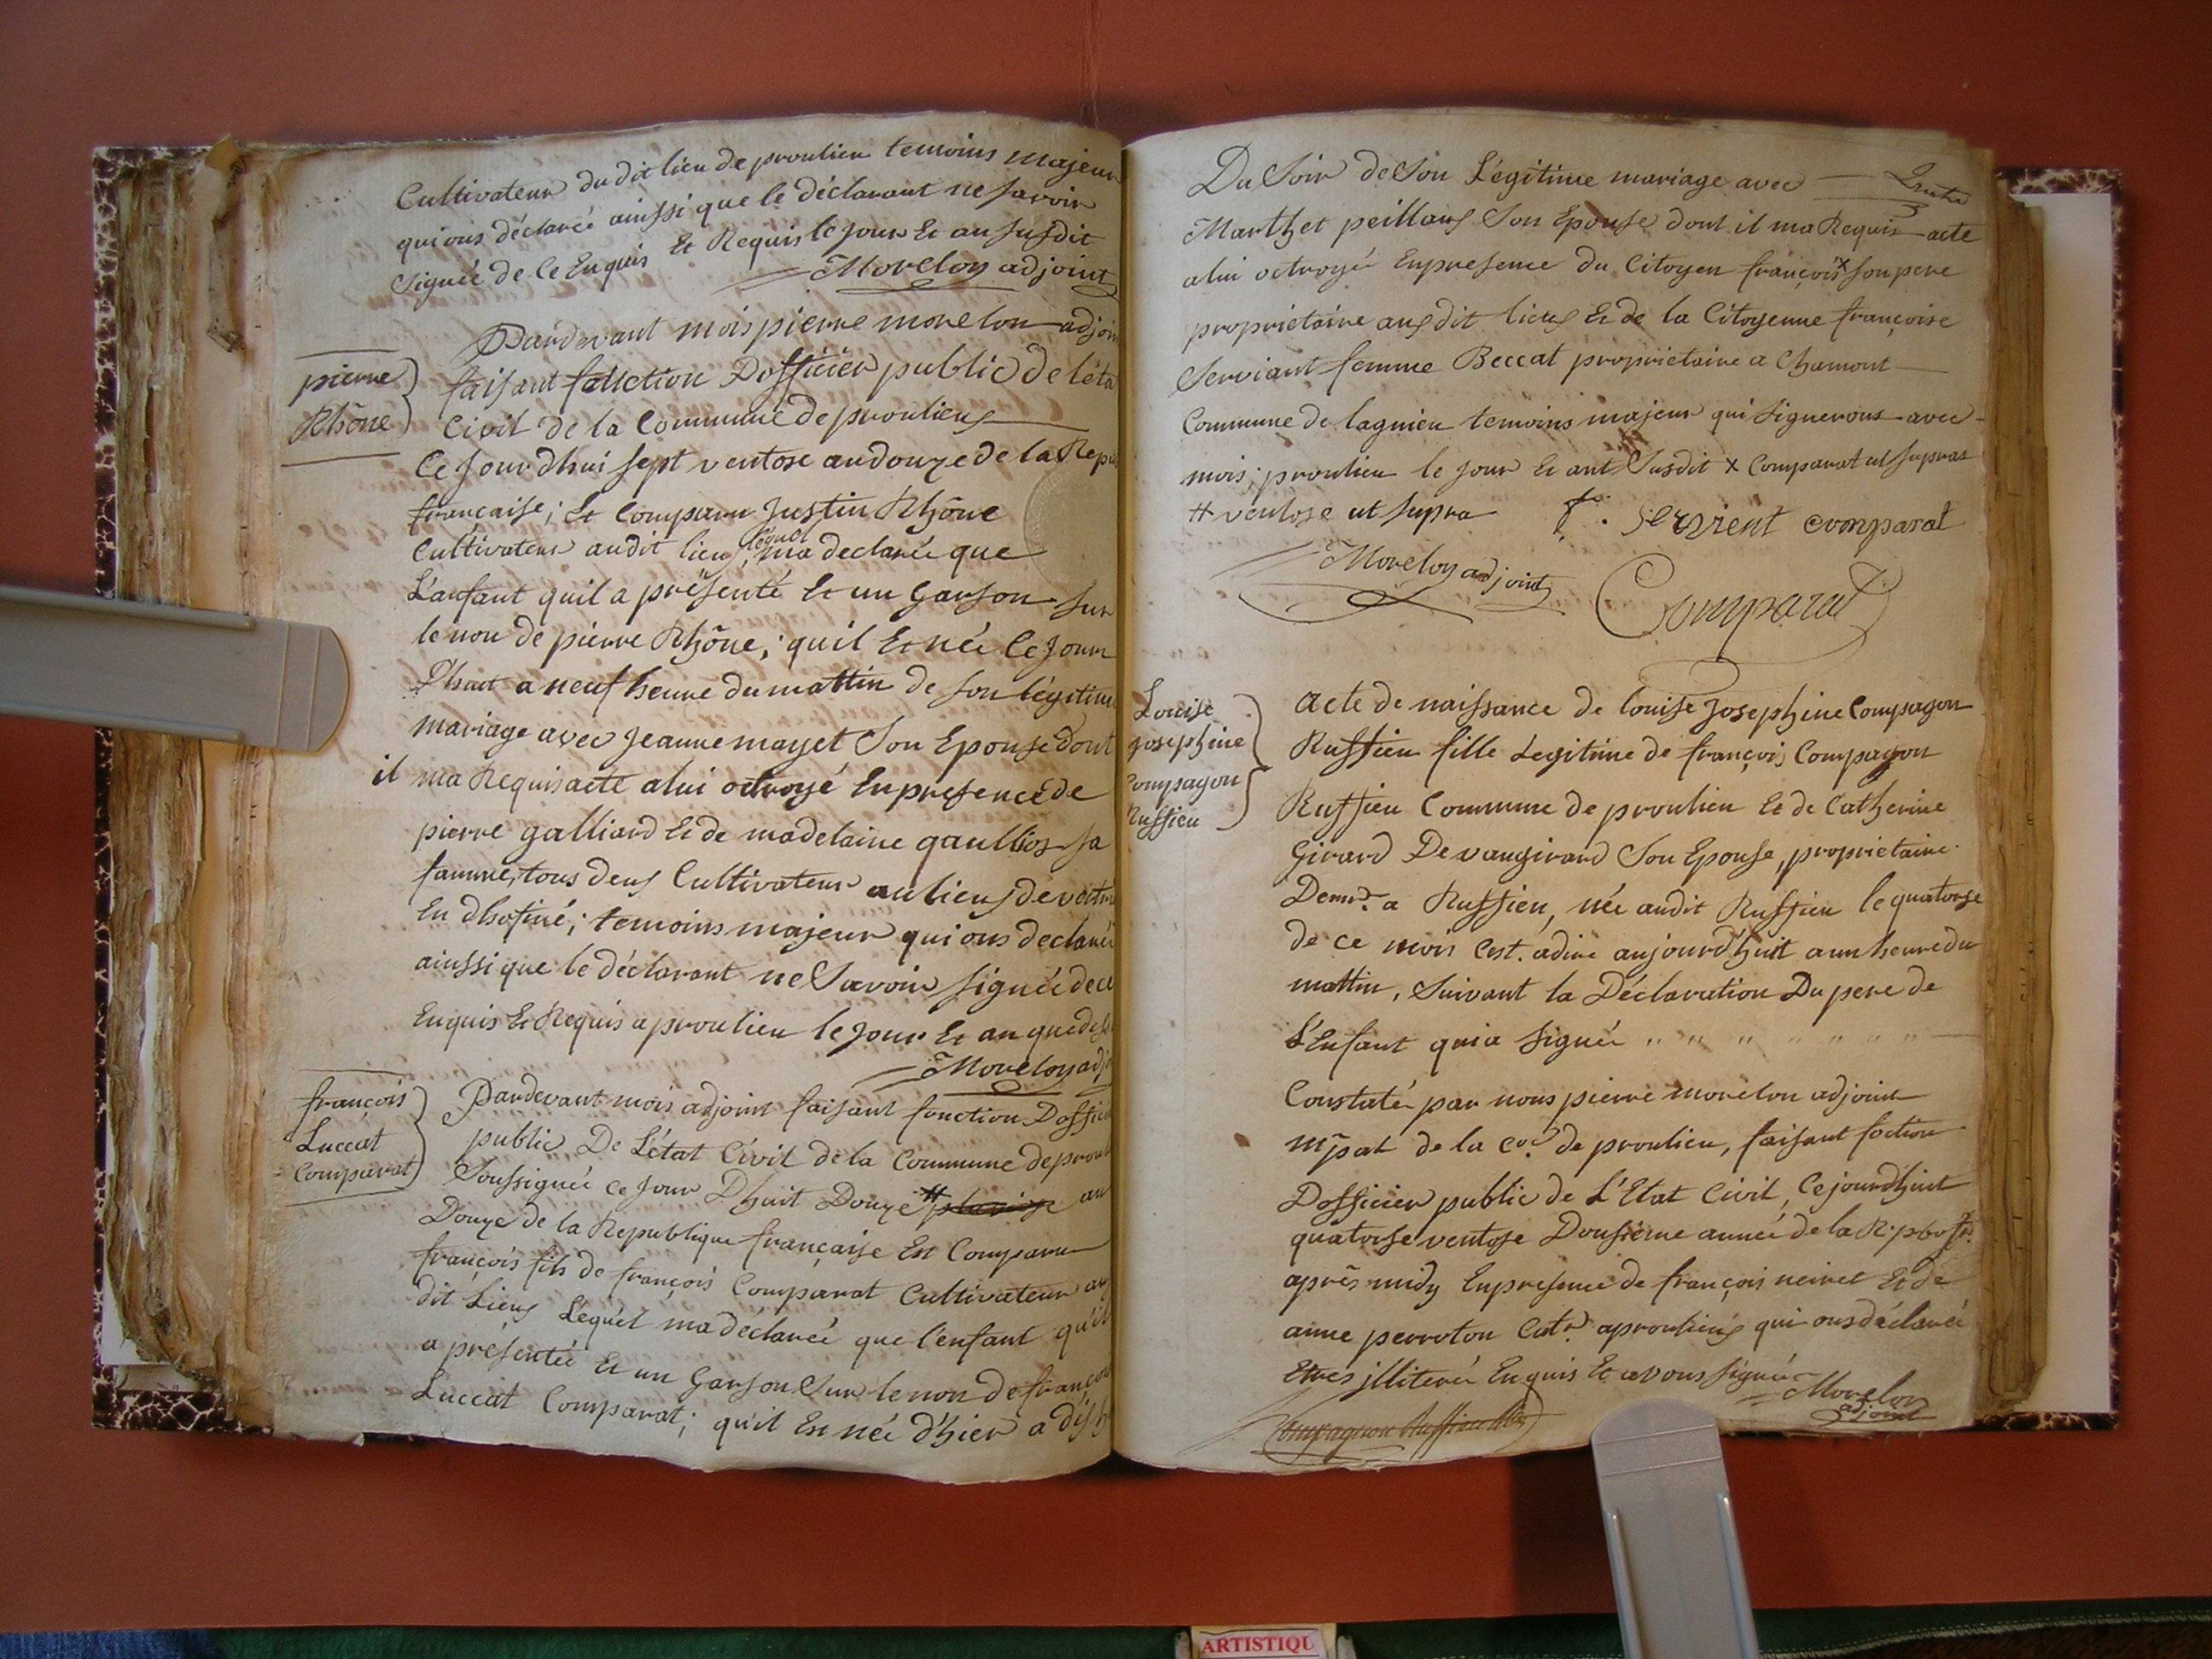 Cultivateur du dit lieu de proulieu temoins majeur
qui ons déclaré ainssi que le déclarant ne savoir
signée de ce Enquis Et Requis le jour Et an susdit
Morelon adjoint
pierre
Rhône
Pardevant mois pierre morelon adjoin
faisant fonction Dofficier public De léta
Civil de la Commune de proulieu
Ce jourdhui sept ventose an douze de la Repu
française; Et Comparu Justin Rhône
lequel
Cultivateur audit lieu, ma declarée que
L'anfant quil a présenté Et un Garson sur
le non de pierre Rhône; quil Et née Ce Jour
Dhuit a neuf heure du mattin de son légitime
mariage avec Jeanne mayet Son Epouse dont
il ma Requis acte alui octroyé En presence de
pierre galliard Et de madelaine gaullios sa
famme, tous deus Cultivateur au lieu de
En dhofiné; temoins majeur qui ons declarée
ainssi que le déclarant ne Savoir signée de ce
Enquis Et Requis a proulieu le Jour Et an que
Morelon adj
françois
Luccat
Comparat
Pardevant mois adjoint faisant fonction Doffici
public De L'état Civil de la Commune de proul
Soussignée ce Jour Dhuit Douze # pluviose an
Douze de la Republique française Est Comparu
françois fils de françois Comparat Cultivateur au
dit Lieu Lequel ma déclarée que l'enfant qu'il
a présentée Et un Garson Sur le non de françoi
Luccat Comparat; qu'il Est née d'hier a
Du Soir de Son Légitime mariage avec
Marthet peillans Son Epouse dont il ma Requis acte
alui octroyé En presence du Citoyen françois x son pere
proprietaire ausdit lieu Et de la Citoyenne françoise
Serviant femme Beccat proprietaire a Chamont
Commune de lagnieu temoins majeur qui Signerons avec
mois; proulieu le jour Et ant Susdit x Comparat ut supras
# ventose ut supra
f. servient comparat
Morelon adjoint
Comparat
Louise
josephine
Compagon
Ruffieu
acte de naissance de louise Josephine Compagon
Ruffieu fille Legitime de françois Compagon
Ruffieu Commune de proulieu Et de Catherine
Girard De vaugirard Son Epouse, proprietaire
Demt. a Ruffieu, née audit Ruffieu le quatorse
de ce mois cest. adire aujourd'huit a un heure du
mattin, Suivant la Déclaration Du pere de
L'Enfant qui a Signée " " " " " " "
Constatée par nous pierre morelon adjoint
mpat de la coe. de proulieu, faisant foction
Dofficier public de L'Etat Civil, Ce jourdhuit
quatorse ventose Dousieme année de la R.
aprês midy En presence de françois neiret Et de
anne perroton Cutr. a proulieu qui ons déclarée
Etres jlliterée Enquis Et avons signée
Morelon
adjoint
Compagnon Ruffieu
ARTISTIQU